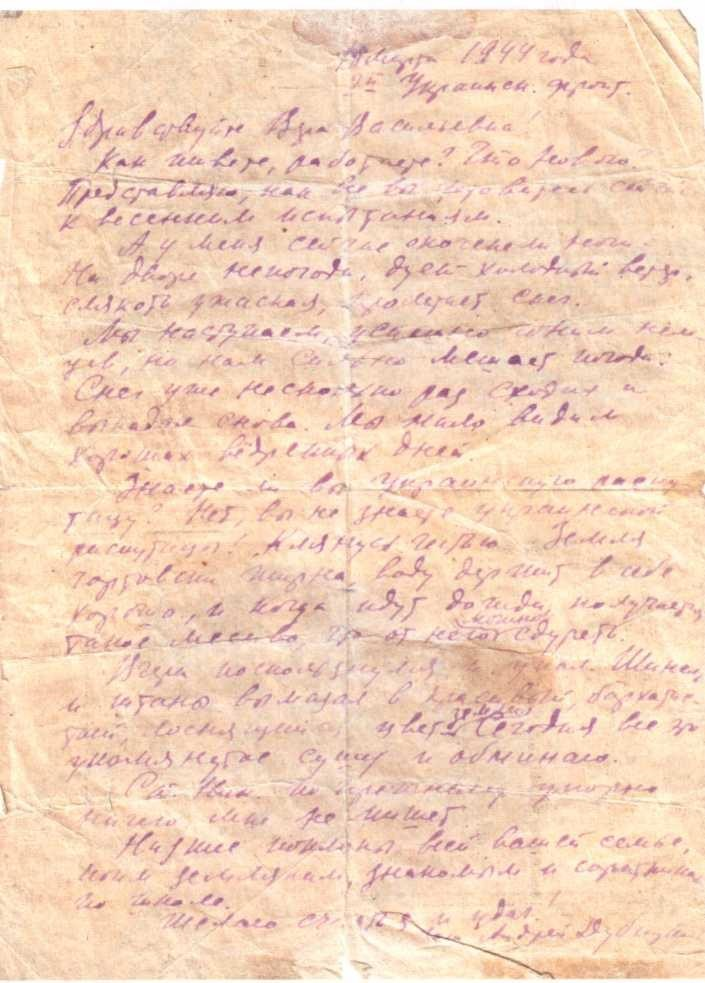 марта 1944 года
Украинск. фронт.
Здравствуйте Вера Васильевна!
Как живете, работаете? Что нового?
Представляю, как все вы готовитесь
к весенним испытаниям.
А у меня сейчас окоченели ноги.
На дворе непогода, дует холодный ветер,
слякоть ужасная, пролетает снег.
Мы наступаем, усиленно гоним нем-
цев, но нам сильно мешает погода.
Снег уже несколько раз сходил и
выпадал снова. Мы мало видим
хороших вёдренных дней.
Знаете ли вы украинскую распу-
тицу? Нет, вы не знаете украинской
распутицы! Клянусь честью. Земля
чертовски жирна, воду держит в себе
хорошо, и когда идут дожди, получается
такое месиво, что от него можно сдуреть.
Вчера поскользнулся и упал. Шинель
и штаны вымазал в красивый, бархатис-
тый, лоснящийся цвет земли. Сегодня все
упомянутое сушу и обминаю.
по прежнему упорно
ничего мне не пишет
Низкие поклоны всей вашей семье,
моим землякам, знакомым и соратникам
по школе.
Желаю счастья и удач!
Андрей